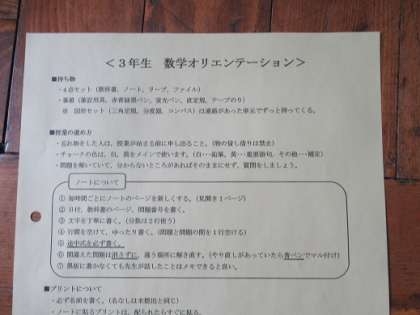 ＜３年生　数学オリエンテーション＞
■持ち物
・４点セット（教科書、ノート、ワーク、ファイル）
・筆箱（筆記用具、赤青鉛筆ペン、蛍光ペン、直定規、テープのり）
※　図形セット（三角定規、分度器、コンパス）は連絡があった単元でずっと持ってくる。
■授業の進め方
・忘れ物をした人は、授業が始まる前に申し出ること。（物の貸し借りは禁止）
・チョークの色は、白、黄をメインで使います。（白･･･鉛筆、黄･･･重要語句、その他･･･補足）
・問題を解いていて、分からないところがあればそのままにせず、質問をしましょう。
ノートについて
① 毎時間ごとにノートのページを新しくする。（見開き１ページ）
② 日付、教科書のページ、問題番号を書く。
③ 文字を丁寧に書く。（分数は２行使う）
④ 行間を空けて、ゆったり書く。（問題と問題の間を１行空ける）
⑤ 途中式を必ず書く。
⑥ 間違えた問題は消さずに、違う場所に解き直す。（やり直しがあっていたら青ペンでマル付け）
⑦ 黒板に書かなくても先生が話したことはメモできると良い。
■プリントについて
・必ず名前を書く。（名なしは未提出と同じ）
・ノートに貼るプリントは、配られたらすぐに貼る。